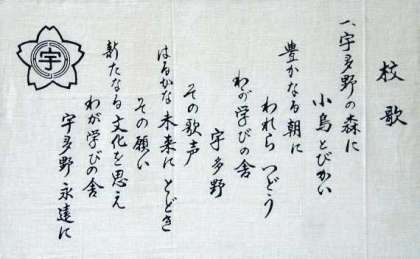 校歌
一、宇多野の森に
小鳥とびかい
豊かなる朝に
われら つどう
わが学びの舎
宇多野
その歌声
はるかな未来に とどき
その願い
新たなる文化を思え
わが学びの舎
宇多野永遠に
宇